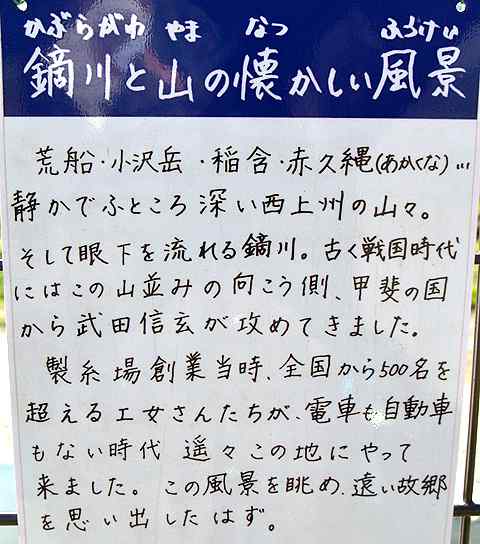 かぶらがわ やま なつ ふうけい
鏑川と山の懐かしい風景
荒船・小沢岳・稲含・赤久縄(あかくな)…
静かでふところ深い西上州の山々。
そして眼下を流れる鏑川。古く戦国時代
にはこの山並みの向こう側、甲斐の国
から武田信玄が攻めてきました。
製糸場創業当時、全国から500名を
超える工女さんたちが、電車も自動車
もない時代 遥々この地にやって
来ました。この風景を眺め、遠い故郷
を思い出したはず。